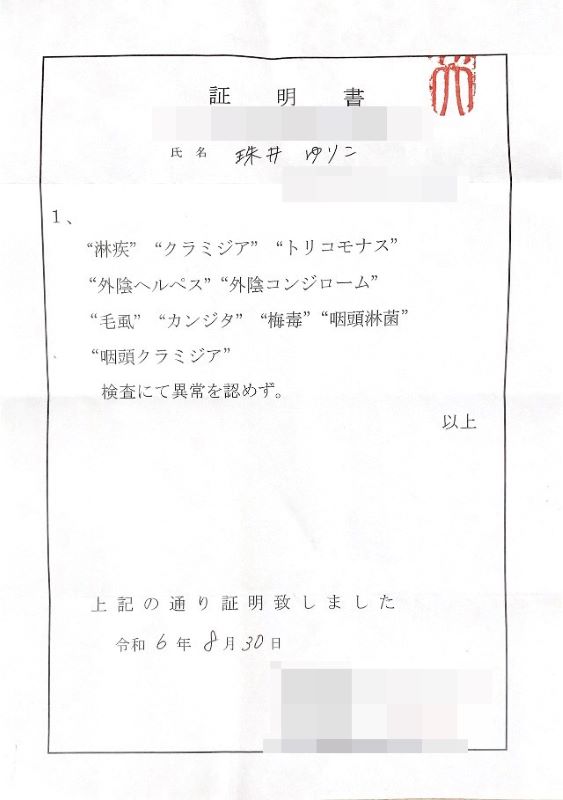 証明書
氏名 珠井 ゆリこ
1、
“淋疾” “クラミジア” “トリコモナス”
“外陰ヘルペス” “外陰コンジローム”
“毛虱” “カンジタ” “梅毒” “咽頭淋菌”
“咽頭クラミジア”
検査にて異常を認めず。
以上
上記の通り証明致しました
令和6年8月30日